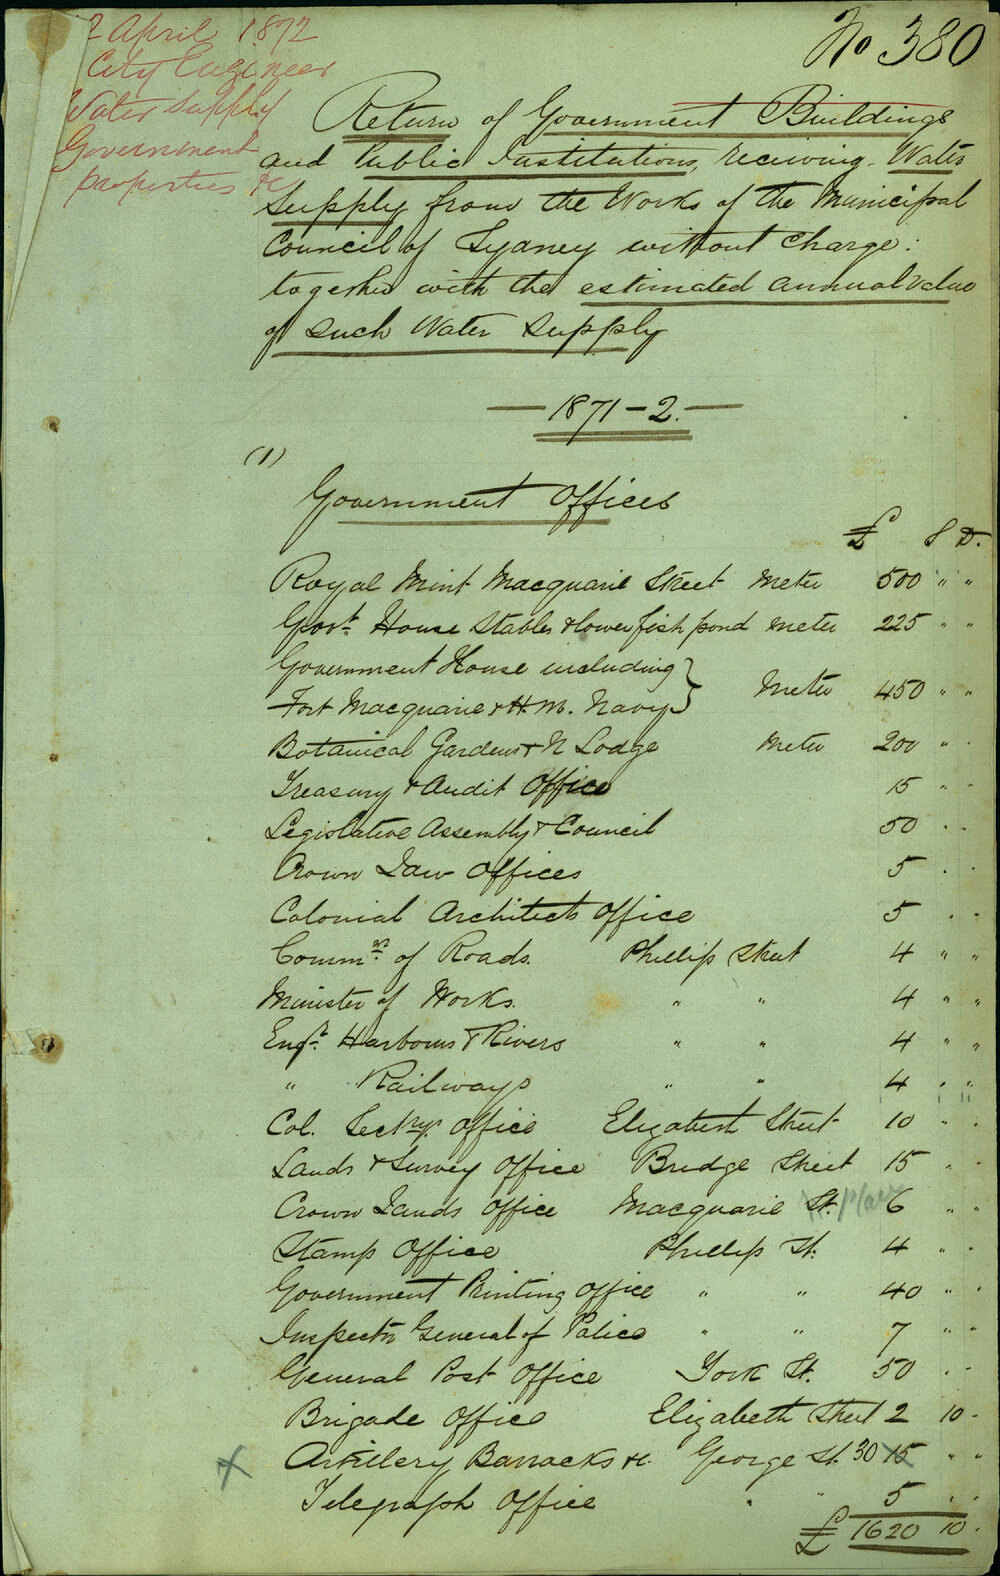 2 April 1872
City Engineer
Water supply
Government
properties &c
No 380
Return of Government Buildings
and Public Institutions, receiving Water
Supply from the Works of the Municipal
Council of Sydney without Charge:
together with the estimated annual value
of such Water Supply
— 1871-2. —
(1)
Government Offices
£ S D.
Royal Mint Macquarie Street Meter 500 " "
Govt. House Stables & lower fish pond meter 225 " "
Government House including }
Fort Macquarie & H.M. Navy } Meter 450 " "
Botanical Gardens & N Lodge Meter 200 " "
Treasury & Audit Office 15 " "
Legislative Assembly & Council 50 " "
Crown Law Offices 5 " "
Colonial Architects Office 5 " "
Commr. of Roads. Phillip Street 4 " "
Minister of Works. " " 4 " "
Engr. Harbours & Rivers " " 4 " "
" Railways " " 4 " "
Col. Secry. Office Elizabeth Street 10 " "
Lands & Survey Office Bridge Street 15 " "
Crown Lands Office Macquarie St. Place 6 " "
Stamp Office Phillip St. 4 " "
Government Printing Office " " 40 " "
Inspector General of Police " " 7 " "
General Post Office York St. 50 " "
Brigade Office Elizabeth Street 2 10 "
X Artillery Barracks &c. George St. 30 15 " "
Telegraph Office " " 5 " "
£ 1620 10 "